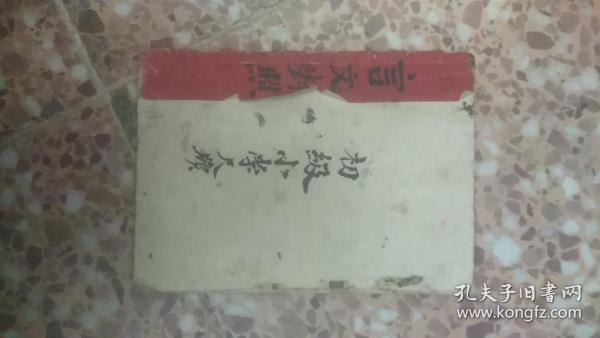 言文對照
初級小學尺牘
孔夫子旧书网
www.kongfz.com